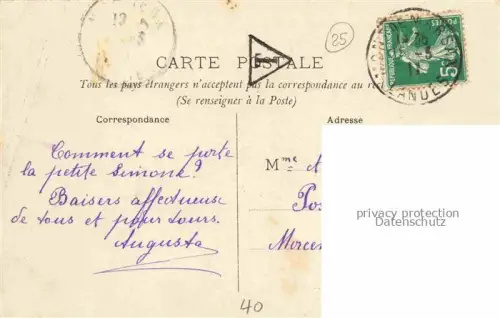 25
CARTE POSTALE
Tous les pays étrangers n'acceptent pas la correspondance au re
(Se renseigner à la Poste)
Correspondance
Adresse
Comment se porte
la petite Simone?
Baisers affectueuse
de tous et pour tours.
Augusta
Mme A
Pos
Morcen
privacy protection
Datenschutz
POSTES
5c
LANDES
40